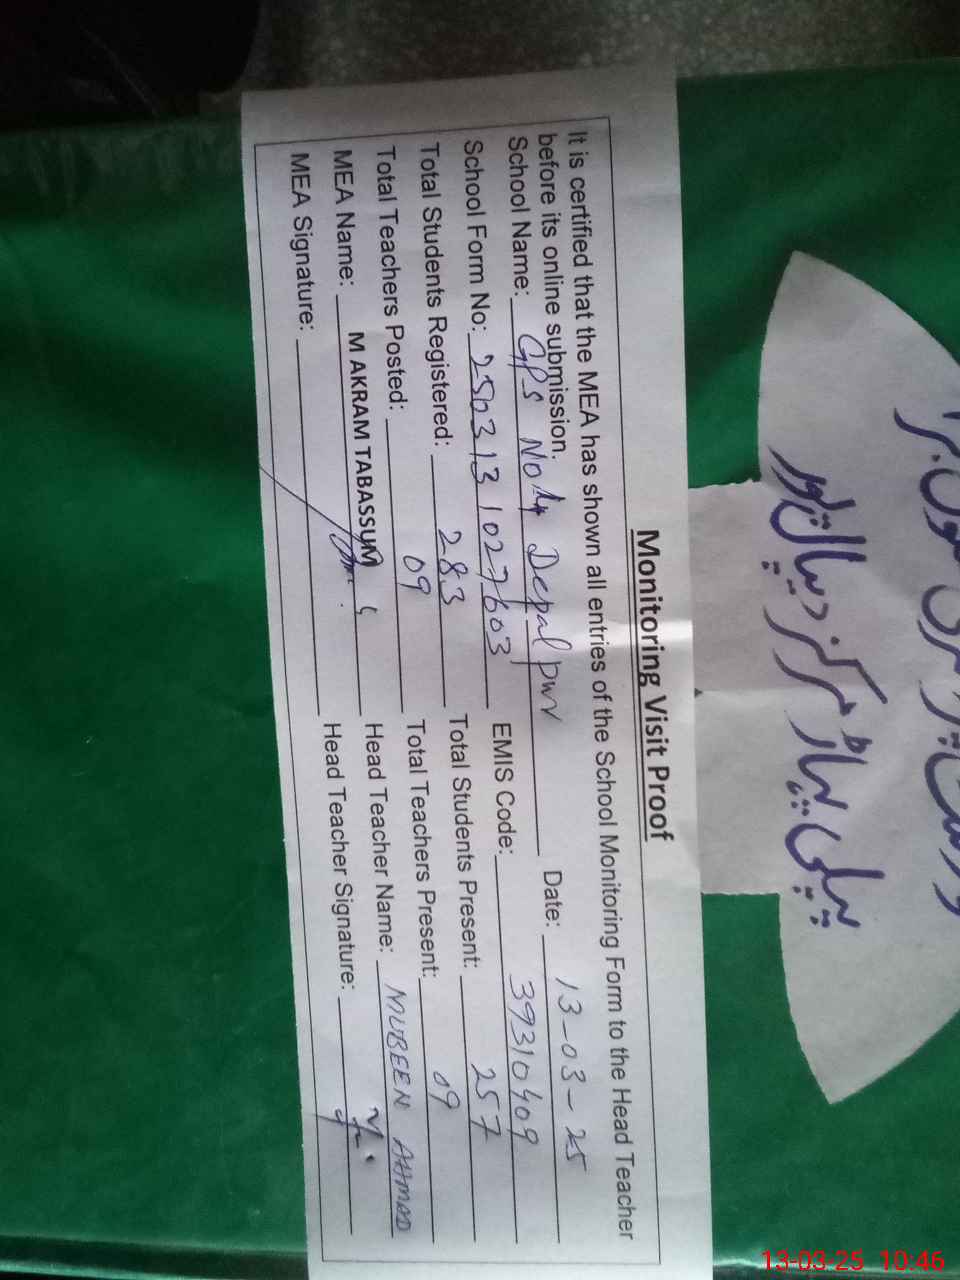 Monitoring Visit Proof
It is certified that the MEA has shown all entries of the School Monitoring Form to the Head Teacher
before its online submission.
School Name: GPS No 4 Depalpur Date: 13-03-25
School Form No: 250313 1027603 EMIS Code: 39310409
Total Students Registered: 283 Total Students Present: 257
Total Teachers Posted: 09 Total Teachers Present: 09
MEA Name: M AKRAM TABASSUM Head Teacher Name: MUBEEN AHMAD
MEA Signature: Head Teacher Signature:
مرکز دیپالپور
13-03-25 10:46